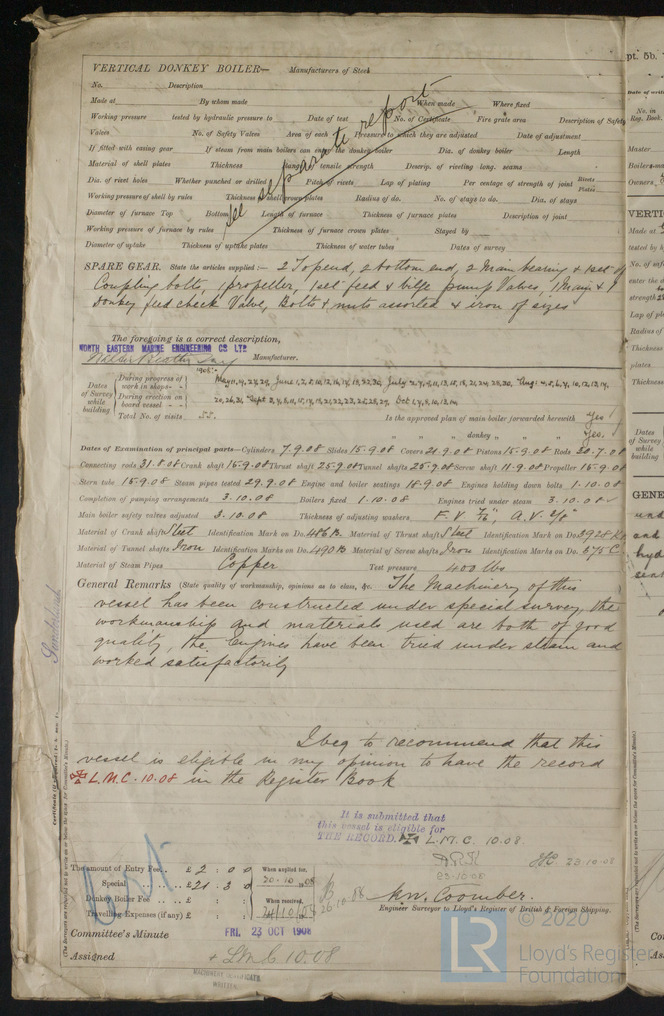 VERTICAL DONKEY BOILER— Manufacturers of Steel
No. Description
Made at By whom made When made Where fixed
Working pressure tested by hydraulic pressure to Date of test No. of Certificate Fire grate area Description of Safety
Valves No. of Safety Valves Area of each Pressure to which they are adjusted Date of adjustment
If fitted with easing gear If steam from main boilers can enter the donkey boiler Dia. of donkey boiler Length
Material of shell plates Thickness Range of tensile strength Descrip. of riveting long. seams
Dia. of rivet holes Whether punched or drilled Pitch of rivets Lap of plating Per centage of strength of joint Rivets Plates
Working pressure of shell by rules Thickness of shell crown plates Radius of do. No. of stays to do. Dia. of stays
Diameter of furnace Top Bottom Length of furnace Thickness of furnace plates Description of joint
Working pressure of furnace by rules Thickness of furnace crown plates Stayed by
Diameter of uptake Thickness of uptake plates Thickness of water tubes Dates of survey
See separate report
SPARE GEAR. State the articles supplied:— 2 Top end, 2 bottom end, 2 Main bearing & 1 set of
Coupling bolts, 1 propeller, 1 set feed & bilge pump Valves, 1 Main & 1
Donkey feed check Valve, Bolts & nuts assorted & iron of sizes
The foregoing is a correct description,
NORTH EASTERN MARINE ENGINEERING CO LTD
Manufacturer.
1908:-
Dates of Survey while building
During progress of work in shops - - May 11, 4, 22, 29, June 1, 2, 8, 10, 12, 16, 17, 19, 22, 30, July 2, 7, 9, 11, 13, 15, 18, 21, 24, 28, 30, Aug: 4, 5, 6, 7, 10, 12, 13, 14,
During erection on board vessel - - 20, 26, 31, Sept 2, 7, 8, 11, 15, 17, 18, 21, 22, 23, 25, 28, 29, Oct 1, 7, 9, 10, 12, 14
Total No. of visits 55. Is the approved plan of main boiler forwarded herewith yes
" " " donkey " " " yes.
Dates of Examination of principal parts—Cylinders 7.9.08 Slides 15.9.08 Covers 21.9.08 Pistons 15.9.08 Rods 20.7.08
Connecting rods 31.8.08 Crank shaft 15.9.08 Thrust shaft 25.9.08 Tunnel shafts 25.9.08 Screw shaft 11.9.08 Propeller 15.9.08
Stern tube 15.9.08 Steam pipes tested 29.9.08 Engine and boiler seatings 18.9.08 Engines holding down bolts 1.10.08
Completion of pumping arrangements 3.10.08 Boilers fixed 1.10.08 Engines tried under steam 3.10.08
Main boiler safety valves adjusted 3.10.08 Thickness of adjusting washers F.V. 7/16", A.V. 3/8"
Material of Crank shaft Steel Identification Mark on Do. 486B. Material of Thrust shaft Steel Identification Mark on Do. 3928
Material of Tunnel shafts Iron Identification Marks on Do. 490B Material of Screw shafts Iron Identification Marks on Do. 575C
Material of Steam Pipes Copper Test pressure 400 lbs
General Remarks (State quality of workmanship, opinions as to class, &c. The Machinery of this
vessel has been constructed under special survey, the
workmanship and materials used are both of good
quality, the Engines have been tried under steam and
worked satisfactorily
I beg to recommend that this
vessel is eligible in my opinion to have the record
✠ L.M.C. 10.08 in the Register Book
It is submitted that
this vessel is eligible for
THE RECORD. ✠ L.M.C. 10.08
23.10.08
23.10.08
The amount of Entry Fee.. £ 2 : 0 : 0 When applied for,
Special .. .. £ 21 : 3 : 0 20.10.08
Donkey Boiler Fee .. £ : : When received,
Travelling Expenses (if any) £ : : 24/10/08
26.10.08
W. Coomber.
Engineer Surveyor to Lloyd's Register of British & Foreign Shipping.
Committee's Minute FRI. 23 OCT 1908
Assigned + LMC 10.08
MACHINERY CERTIFICATE
WRITTEN
Sunderland
(The Surveyors are requested not to write on or below the space for Committee's Minute.)
© 2020
LR
Lloyd's Register
Foundation
pt. 5b.
Date of writing
No. in
Reg. Book.
Master
Boilers
Owners
VERTICAL
Made at
tested by
No. of safety
enter the
strength
Lap of
Radius of
plates
Thickness
Dates of Survey while building
GENERAL
and